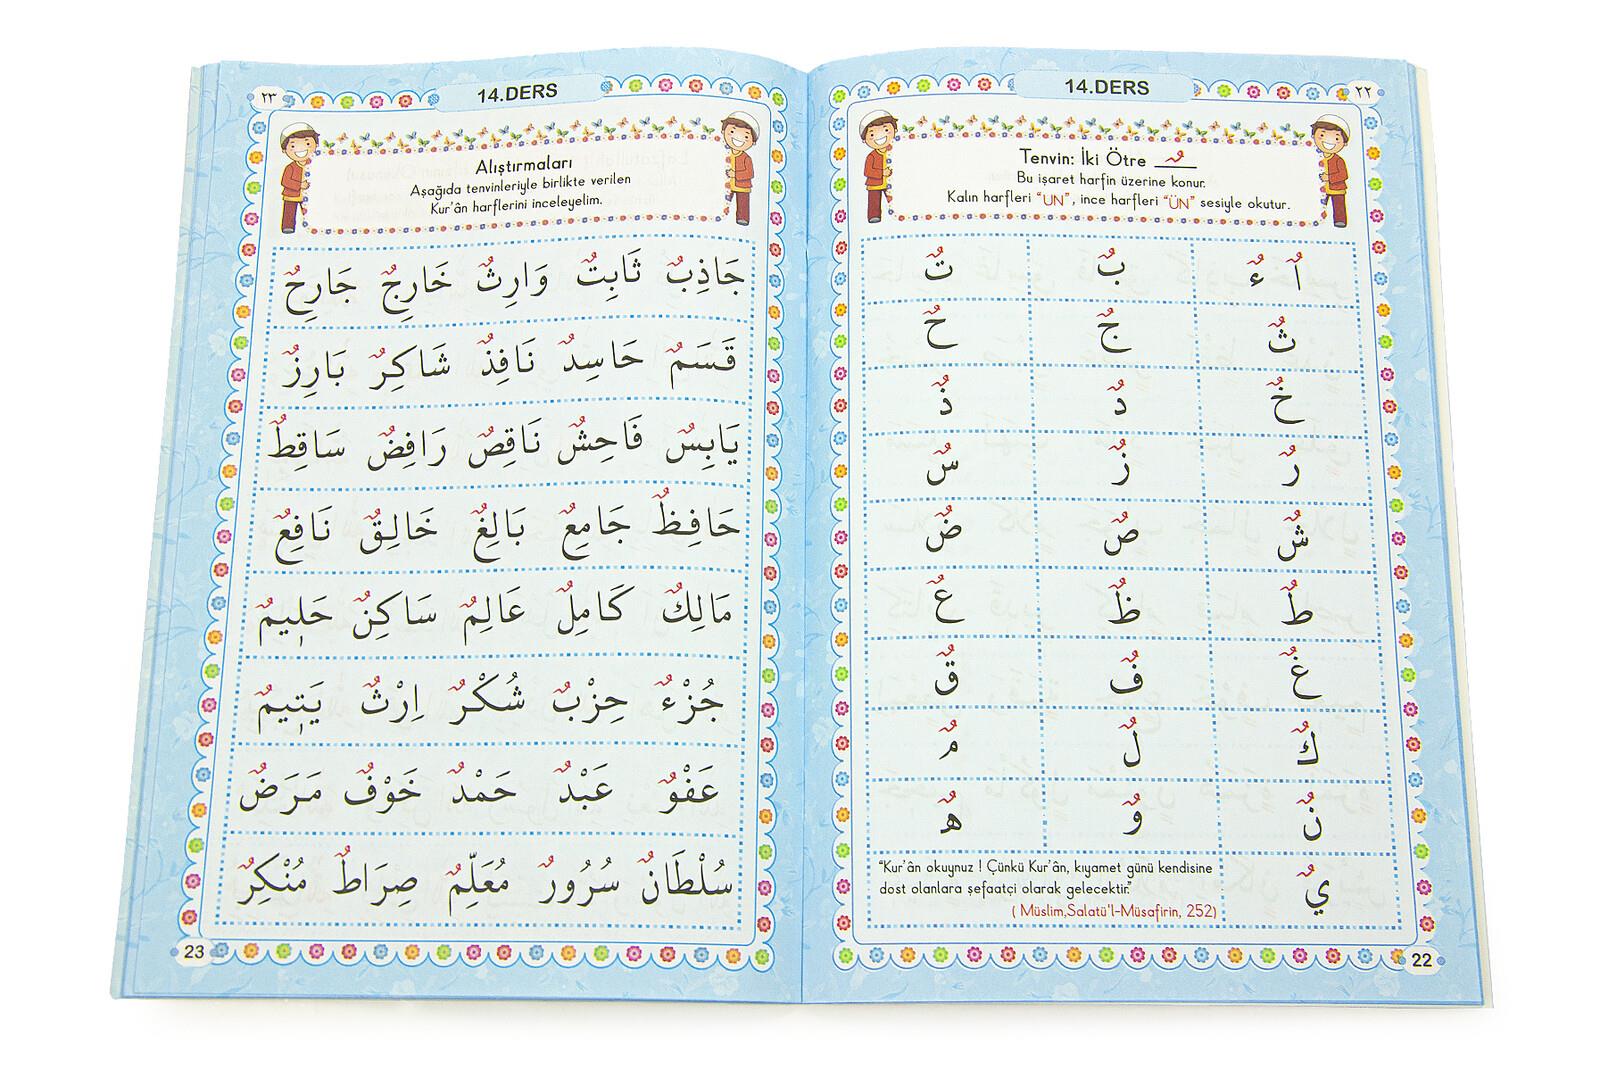 ٢٢
14.DERS
Tenvin: İki Ötre ـٌ
Bu işaret harfin üzerine konur.
Kalın harfleri “UN”, ince harfleri “ÜN” sesiyle okutur.
اٌ ءٌ بٌ تٌ
ثٌ جٌ حٌ
خٌ دٌ ذٌ
رٌ زٌ سٌ
شٌ صٌ ضٌ
طٌ ظٌ عٌ
غٌ فٌ قٌ
كٌ لٌ مٌ
نٌ وٌ هٌ
يٌ
“Kur’ân okuyunuz ! Çünkü Kur’ân, kıyamet günü kendisine
dost olanlara şefaatçi olarak gelecektir.”
( Müslim,Salatü'l-Müsafirin, 252)
22
٢٣
14.DERS
Alıştırmaları
Aşağıda tenvinleriyle birlikte verilen
Kur’ân harflerini inceleyelim.
جَاذِبٌ ثَابِتٌ وَارِثٌ خَارِجٌ جَارِحٌ
قَسَمٌ حَاسِدٌ نَافِذٌ شَاكِرٌ بَارِزٌ
يَابِسٌ فَاحِشٌ نَاقِصٌ رَافِضٌ سَاقِطٌ
حَافِظٌ جَامِعٌ بَالِغٌ خَالِقٌ نَافِعٌ
مَالِكٌ كَامِلٌ عَالِمٌ سَاكِنٌ حَلِيمٌ
جُزْءٌ حِزْبٌ شُكْرٌ اِرْثٌ يَتِيمٌ
عَفْوٌ عَبْدٌ حَمْدٌ خَوْفٌ مَرَضٌ
سُلْطَانٌ سُرُورٌ مُعَلِّمٌ صِرَاطٌ مُنْكِرٌ
23